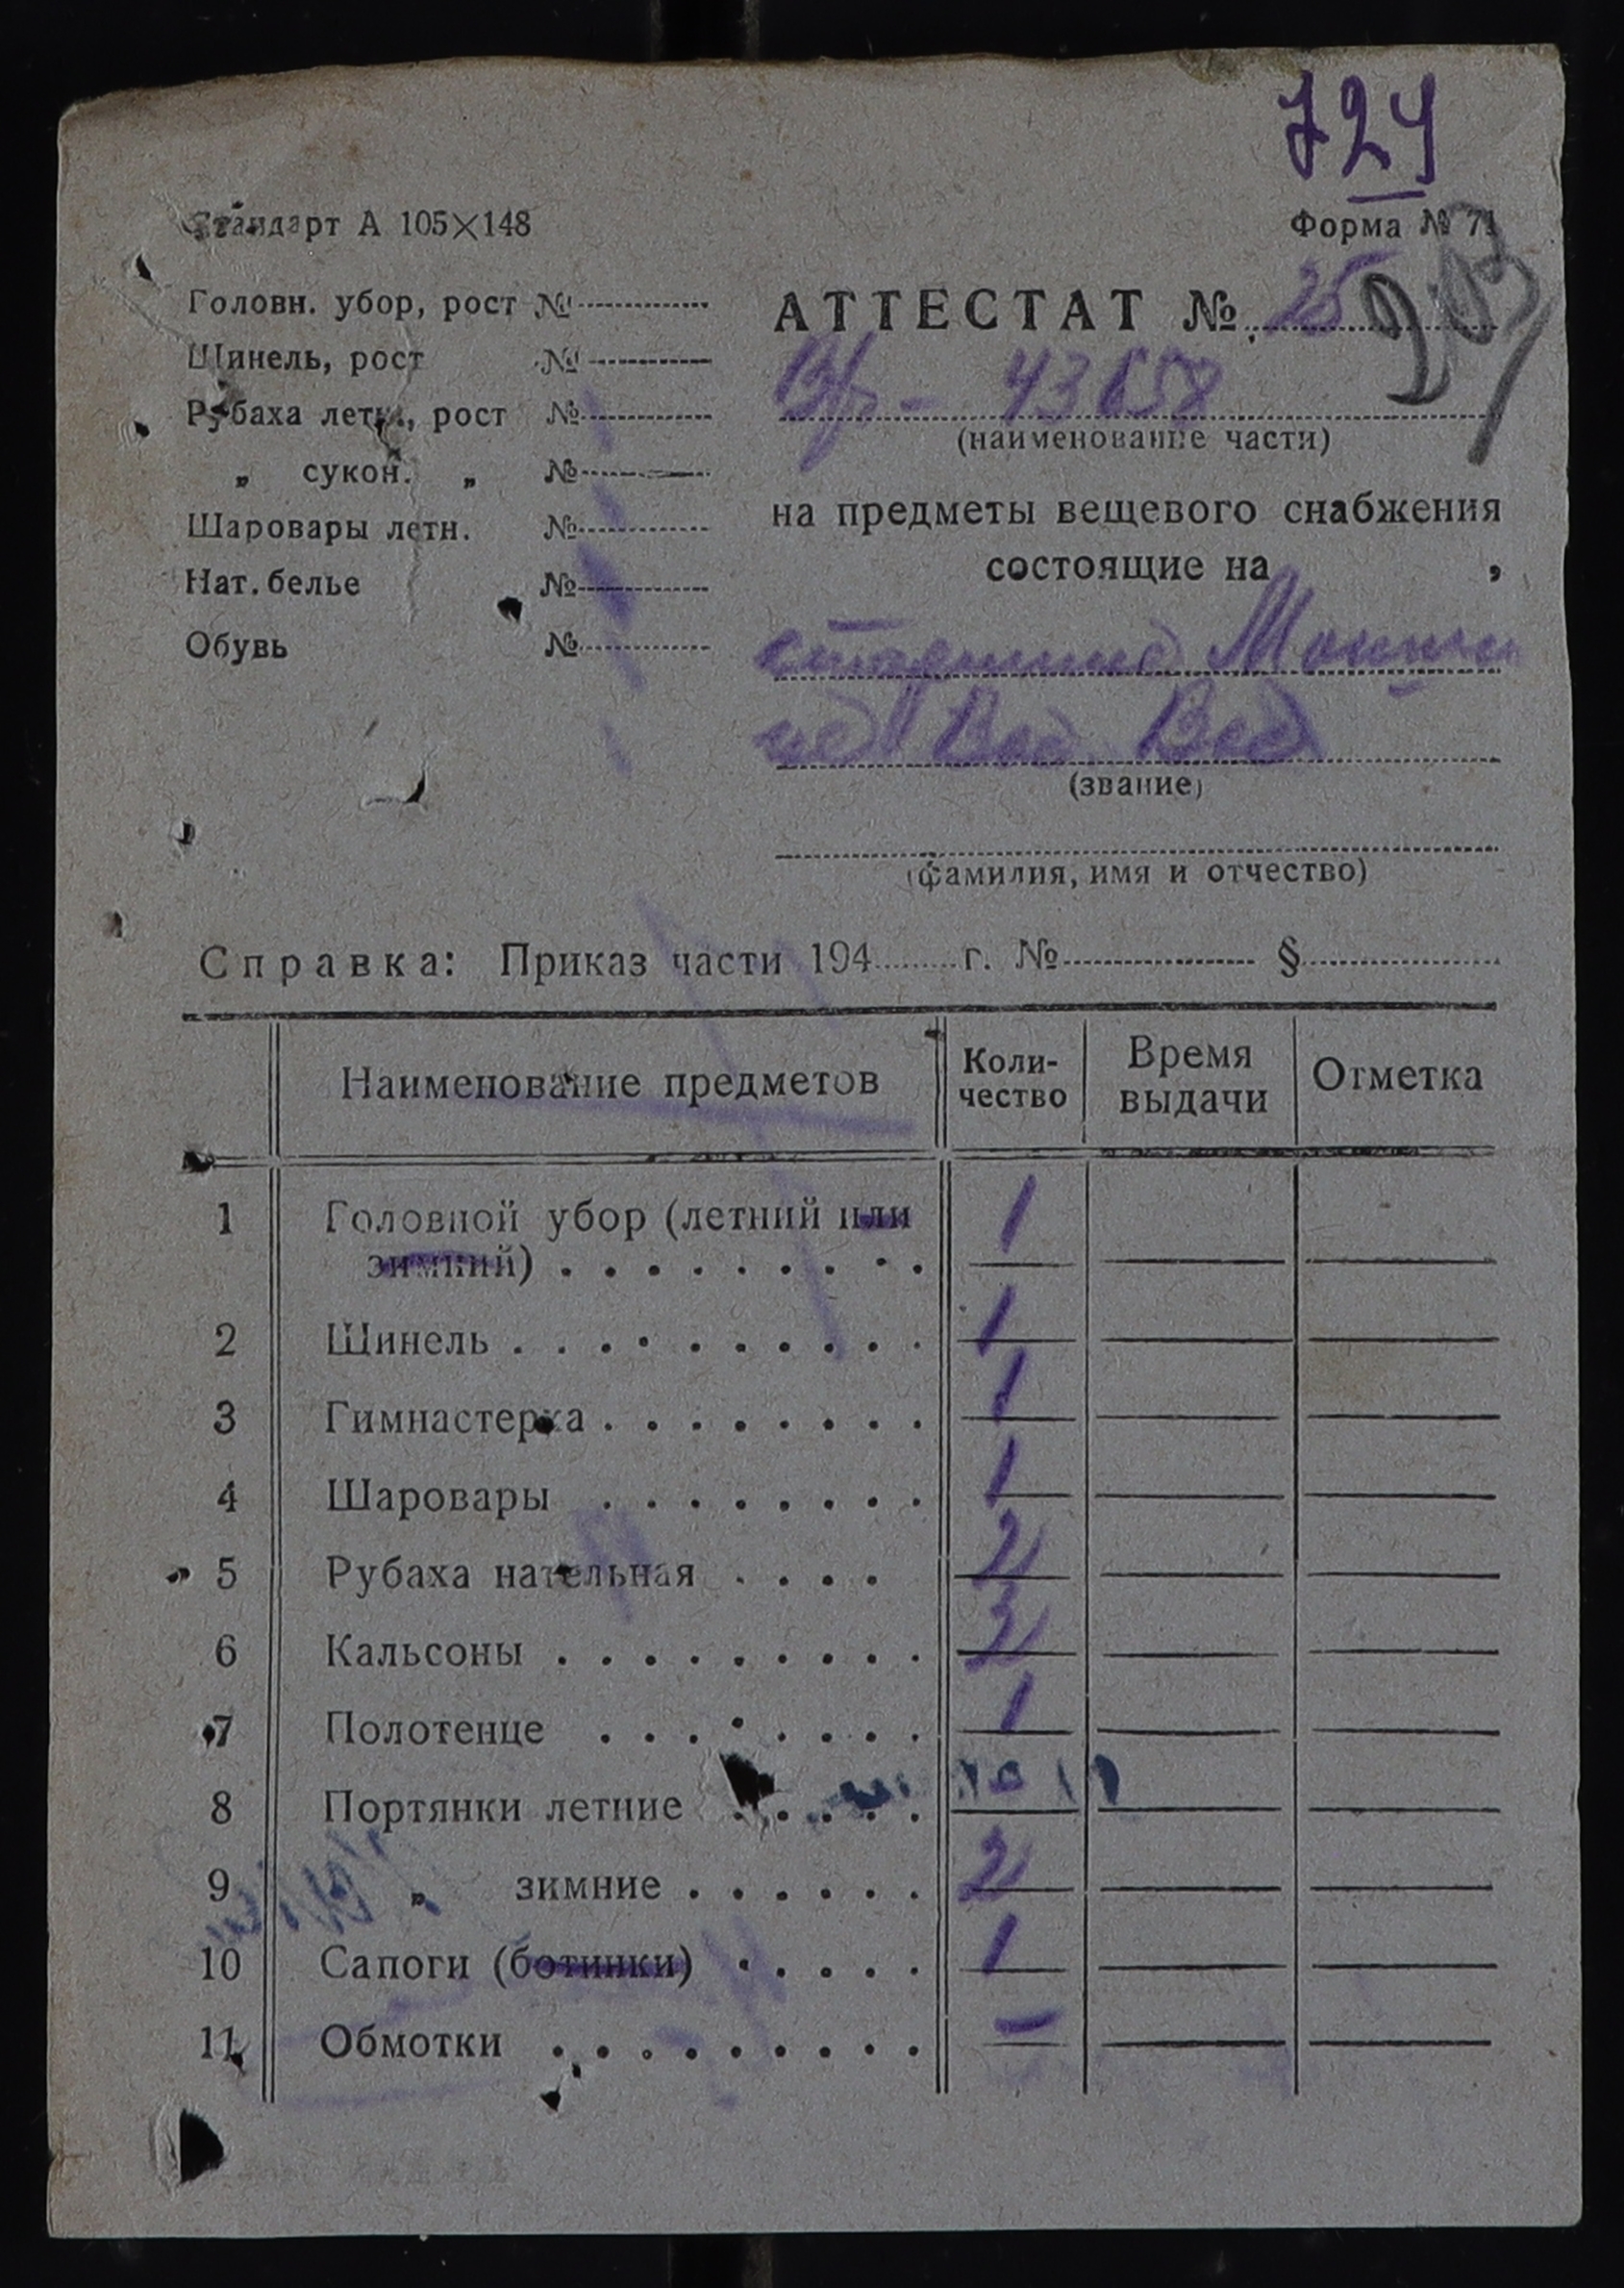 724
Стандарт А 105×148
Форма № 71
Головн. убор, рост №
Шинель, рост №
Рубаха летн., рост №
„ сукон. „ №
Шаровары летн. №
Нат. белье №
Обувь №
АТТЕСТАТ № 25
43658
(наименование части)
на предметы вещевого снабжения
состоящие на ,
старшина
(звание)
(фамилия, имя и отчество)
Справка: Приказ части 194 г. № §
Наименование предметов Количество Время выдачи Отметка
1 Головной убор (летний или зимний) 1
2 Шинель 1
3 Гимнастерка 1
4 Шаровары 1
5 Рубаха нательная 2
6 Кальсоны 2
7 Полотенце 1
8 Портянки летние
9 „ зимние 2
10 Сапоги (ботинки) 1
11 Обмотки –